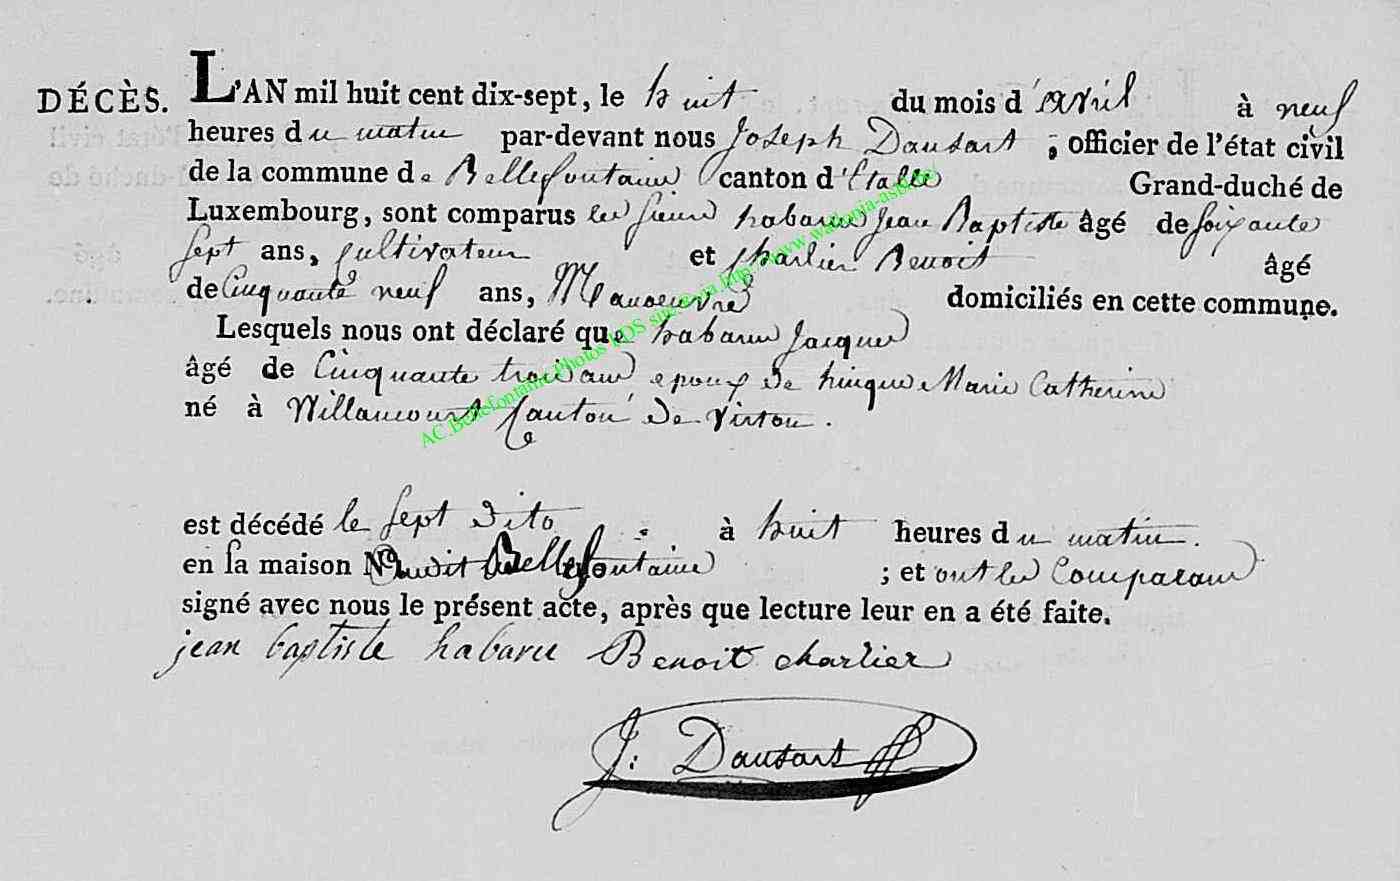 DÉCÈS. L'AN mil huit cent dix-sept, le huit du mois d'avril à neuf
heures du matin par-devant nous Joseph Dausart, officier de l'état civil
de la commune de Bellefontaine canton d'Etalle Grand-duché de
Luxembourg, sont comparus les sieurs habaru Jean Baptiste âgé de soixante
sept ans, cultivateur et charlier Benoit âgé
de Cinquante neuf ans, Manoeuvre domiciliés en cette commune.
Lesquels nous ont déclaré que habaru Jacques
âgé de Cinquante trois ans epoux de hinque Marie Catherine
né à Willancourt Canton de Virton.
est décédé le sept dito à huit heures du matin.
en sa maison N° audit Bellefontaine ; et ont les Comparans
signé avec nous le présent acte, après que lecture leur en a été faite.
jean baptiste habaru Benoit charlier
J. Dausart
AC Bellefontaine Photos